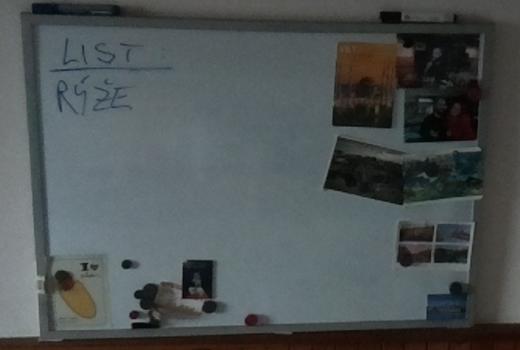 LIST
RÝŽE
I